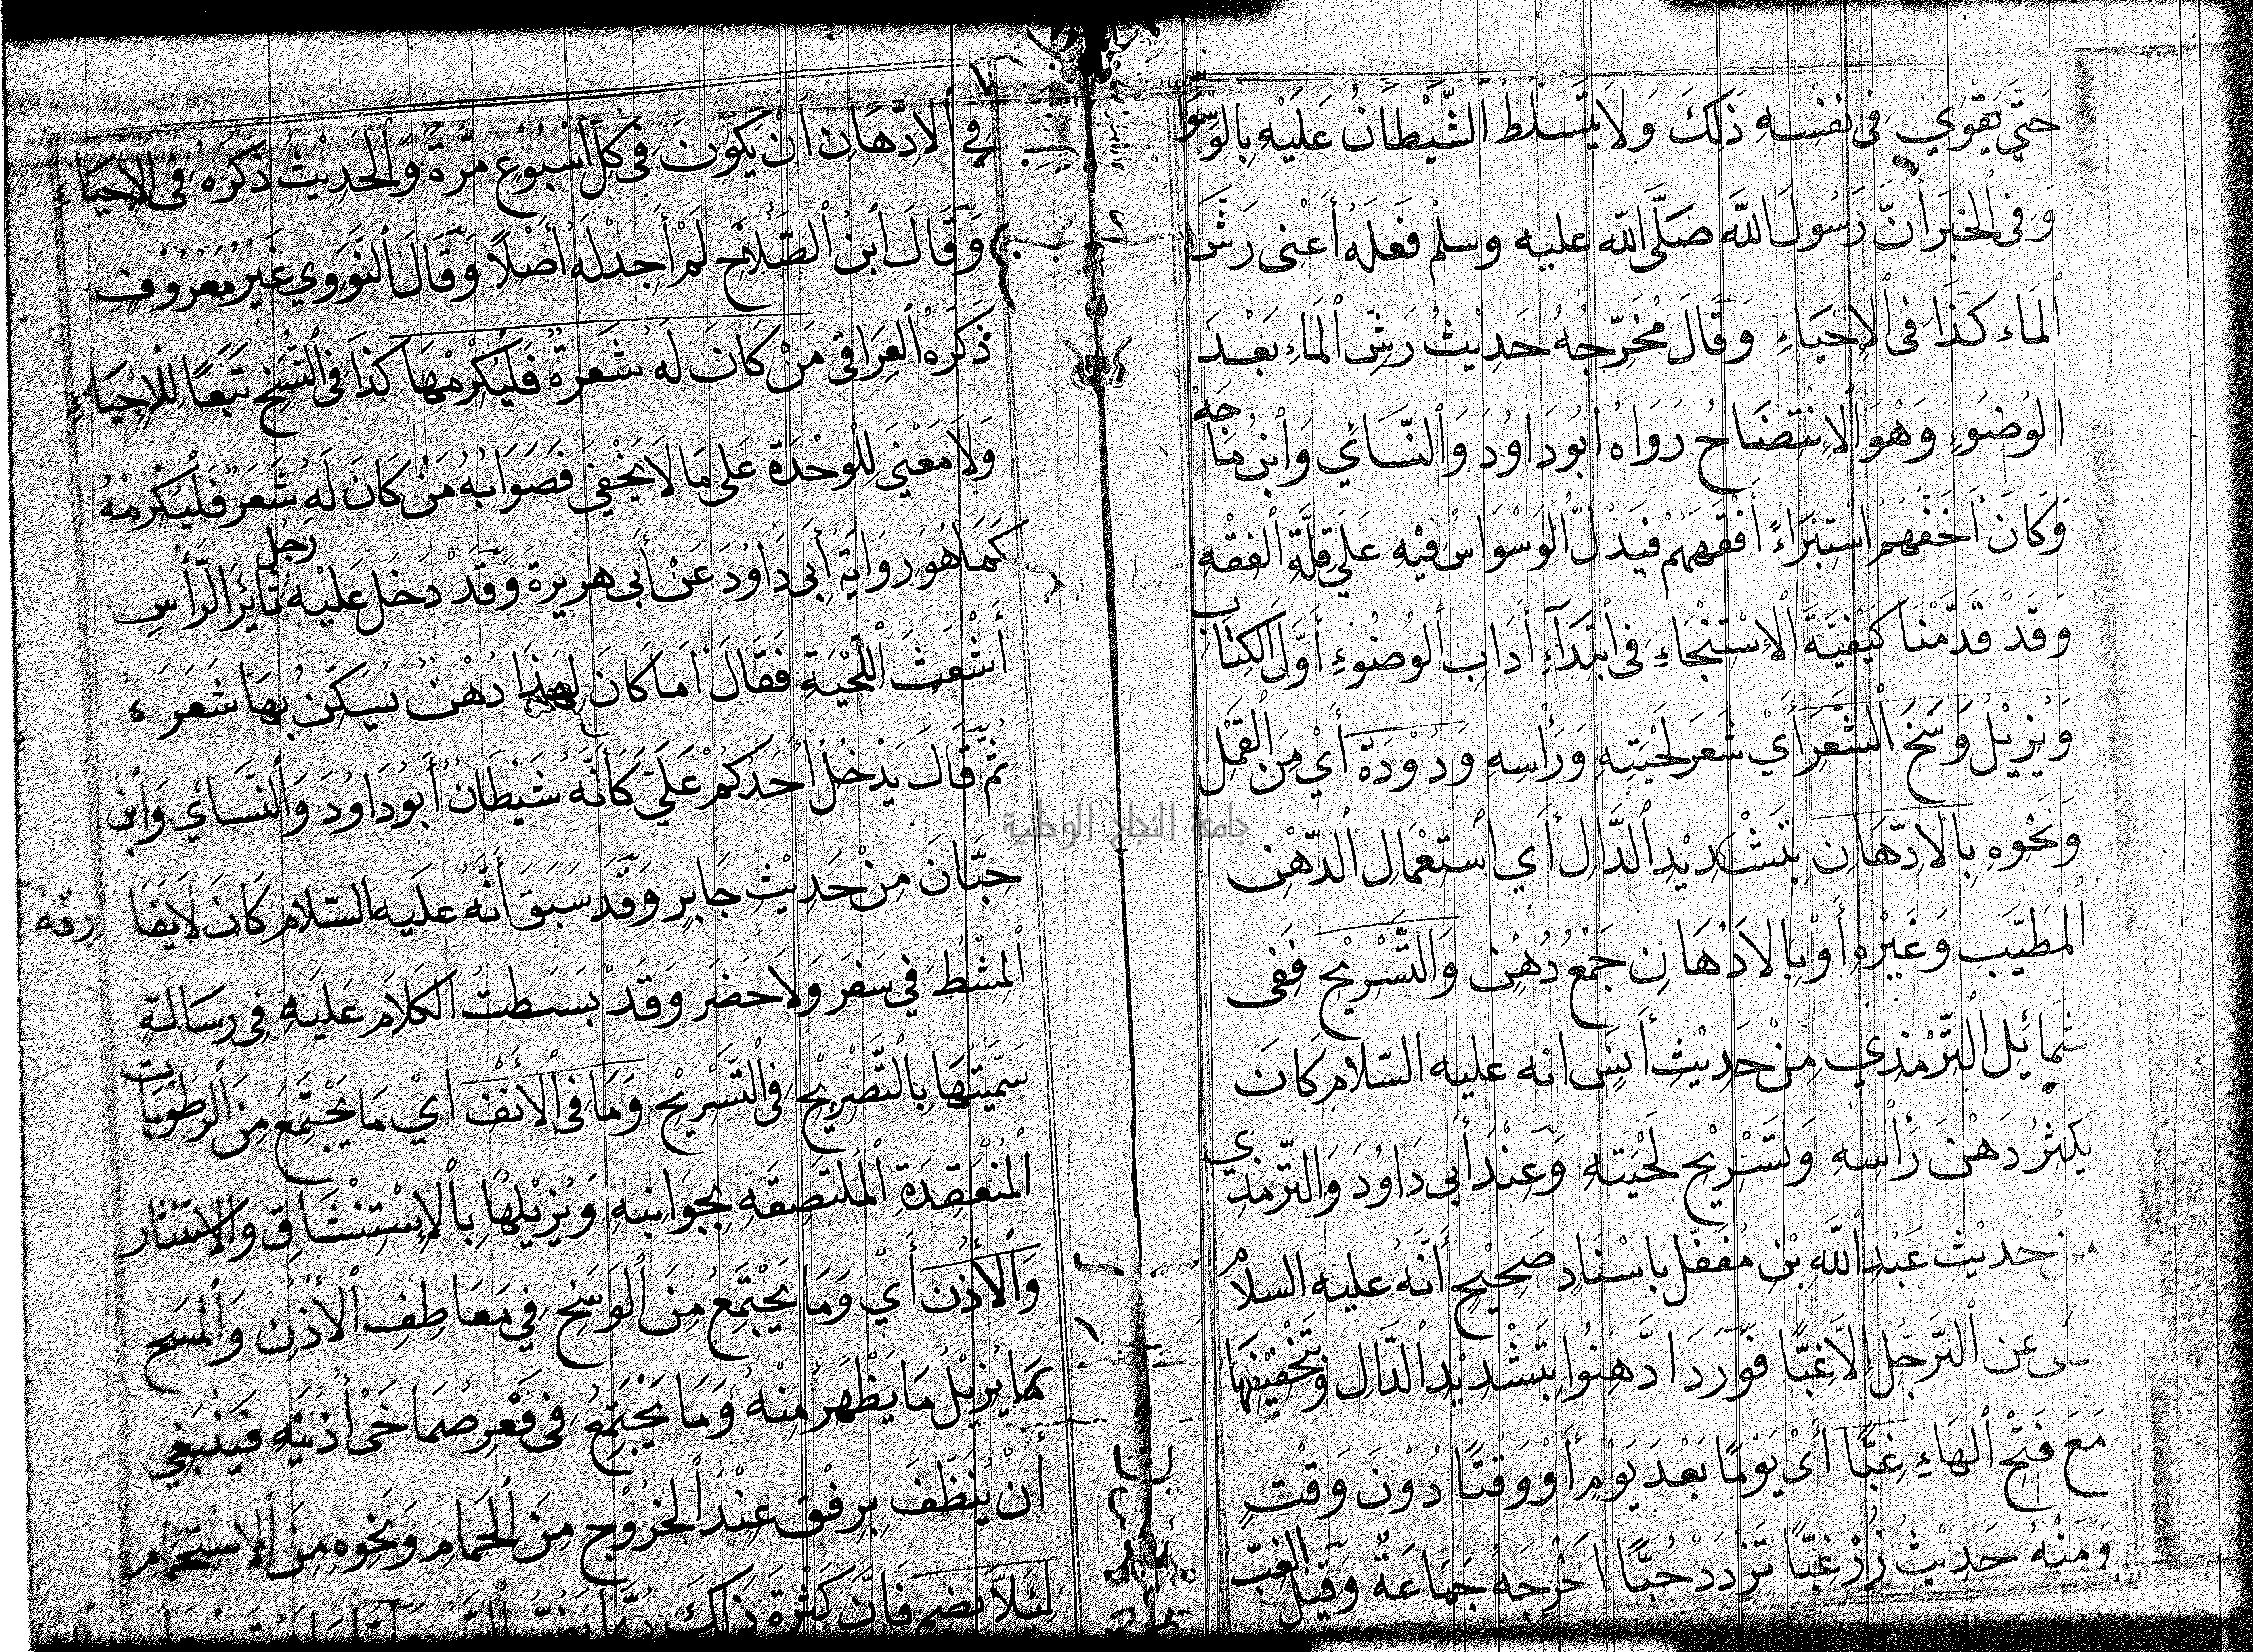 حَتَّي يَقْوَي فِى نَفْسِهِ ذَلِكَ وَلَا يَتَسَلَّطُ الشَّيْطَانُ عَلَيْهِ بِالوَسْوَا
وَفِى الخَبَرِ أَنَّ رَسُولَ اللَّه صَلَّى اللّه عليه وسلم فَعَلَهُ أَعْنِى رَشَّ
المَاء كَذَا فِى الإِحْيَاءِ وَقَالَ مُخَرِّجُهُ حَدِيْثُ رَشِّ المَاءِ بَعْدَ
الوُضُوءِ وَهْوَ الاِنْتِضَاحُ رَوَاهُ ابُو دَاوُدَ وَالنَّسَائِي وَابْنُ مَاجَهْ
وَكَانَ أَخَفُّهُم اسْتِبْرَاءً أَفْقَهَهُمْ فَيَدُلُّ الوَسْوَاسُ فِيْهِ عَلَي قِلَّةِ الفِقْهِ
وَقَدْ قَدَّمْنَا كَيْفِيَّةَ الاِسْتِنْجَاءِ فِى ابْتِدَآءِ أَدَابِ الوُضُوْءِ أَوَّلَ الكِتَاب
وَيُزِيْلُ وَسَخَ الشَّعَرِ أَيْ شَعَرِ لِحْيَتِهِ وَرَأْسِهِ وَدُوْدَهُ أَيْ مِنَ القَمْلِ
وَنَحْوِهِ بِالاِدِّهَانِ بِتَشْدِيْدِ الدَّالِ أَي اسْتِعْمَالِ الدُّهْنِ
المُطَيَّبِ وَغَيْرِهِ أَوْ بِالاَدْهَانِ جَمْعُ دُهْنٍ وَالتَّسْرِيْحِ فَفِى
شَمَائِلِ التِّرْمِذِي مِنْ حَدِيْثِ أَنَسٍ انه عليه السّلام كَانَ
يُكْثِرُ دَهْنَ رَأْسِهِ وَتَسْرِيْحَ لِحْيَتِهِ وَعِنْدَ أَبِى دَاوُدَ وَالتِّرْمِذِي
مِنْ حَدِيْثِ عَبْدِ اللَّهِ بْنِ مُغَفَّلٍ بِاسْنَادٍ صَحِيْحٍ أَنَّهُ عليه السلام
عَنِ التَّرَجُّلِ إِلَّا غِبًّا فَوَرَدَ ادَّهِنُوا بِتَشْدِيْدِ الدَّالِ وَتَخْفِيْفِهَا
مَعَ فَتْحِ الهَاءِ غِبًّا أَيْ يَوْمًا بَعْدَ يَوْمٍ أَوْ وَقْتًا دُوْنَ وَقْتٍ
وَمِنْهُ حَدِيْثُ زُرْ غِبًّا تَزْدَدْ حُبًّا اَخْرَجَهُ جَمَاعَةٌ وَقِيْلَ الغِبُّ
٧
فِي الاِدِّهَانِ أَنْ يَكُوْنَ فِى كُلِّ اُسْبُوْعٍ مَرَّةً وَالحَدِيْثُ ذَكَرَهُ فِى الإِحْيَاءِ
وَقَالَ ابْنُ الصَّلَاحِ لَمْ أَجِدْ لَهُ أَصْلًا وَقَالَ النَّوَوِي غَيْرُ مَعْرُوْفٍ
ذَكَرَهُ العِرَاقِى مَنْ كَانَ لَهُ شَعْرَةٌ فَلْيُكْرِمْهَا كَذَا فِى النُّسَخِ تَبَعًا لِلْإِحْيَاءِ
وَلَا مَعْنَي لِلْوَحْدَةِ عَلى مَا لَا يَخْفَي فَصَوَابُهُ مَنْ كَانَ لَهُ شَعَرٌ فَلْيُكْرِمْهُ
كَمَا هُوَ رِوَايَةُ أَبِى دَاوُدَ عَنْ أَبِى هريرة وَقَدْ دَخَلَ عَلَيْهِ رَجُلٌ ثَائِرَ الرَّأْسِ
أَشْعَثَ اللِّحْيَةِ فَقَالَ أَمَا كَانَ لِهَذَا دُهْنٌ يُسَكِّنُ بِهَا شَعَرَهُ
ثُمَّ قَالَ يَدْخُلُ أَحَدُكُمْ عَلَيَّ كَأَنَّهُ شَيْطَانٌ أَبُو دَاوُدَ وَالنَّسَائِي وَابْنُ
حِبَّانَ مِنْ حَدِيْثِ جَابِرٍ وَقَدْ سَبَقَ أَنَّهُ عليه السّلام كَانَ لَا يُفَارِقُهُ
المُشْطُ فِي سَفَرٍ وَلَا حَضَرٍ وَقَدْ بَسَطتُ الكَلَامَ عَلَيهِ فِى رِسَالَةٍ
سَمَّيْتُهَا بِالتَّصْرِيْحِ فِى التَّسْرِيْحِ وَمَا فِى الأَنْفِ اَيْ مَا يَجْتَمِعُ مِنَ الرُّطُوْبَات
المُنْعَقِدَةِ المُلْتَصِقَةِ بِجَوَانِبِهِ وَيُزِيْلُهَا بِالاِسْتِنْشَاقِ وَالاِسْتِنْثَار
وَالأُذُنِ أَيْ وَمَا يَجْتَمِعُ مِنَ الوَسَخِ فِي مَعَاطِفِ الأُذُنِ وَالمَسْحِ
كَمَا يُزِيْلُ مَا يَظْهَرُ مِنْهُ وَمَا يَجْتَمِعُ فِى قَعْرِ صُمَاخَىْ أُذُنَيْهِ فَيَنْبَغِي
أَنْ يُنَظِّفَ بِرِفْقٍ عِنْدَ الخُرُوْجِ مِنَ الحَمَّامِ وَنَحْوِهِ مِنَ الاِسْتِحْمَامِ
لِئَلَّا فَاِنَّ كَثْرَةَ ذَلِكَ رُبَّمَا
جامعة النجاح الوطنية